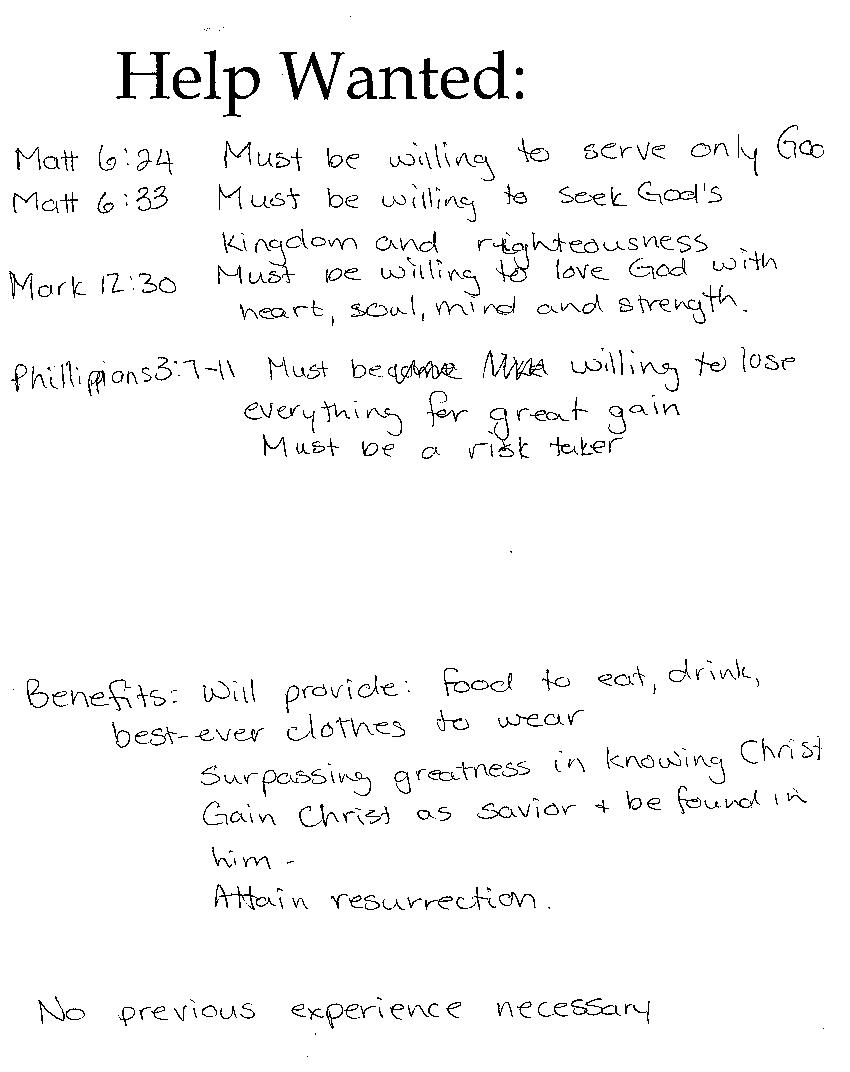 Help Wanted:
Matt 6:24 Must be willing to serve only God
Matt 6:33 Must be willing to seek God's
kingdom and righteousness
Mark 12:30 Must be willing to love God with
heart, soul, mind and strength.
Phillippians 3:7-11 Must be willing to lose
everything for great gain
Must be a risk taker
Benefits: Will provide: food to eat, drink,
best-ever clothes to wear
Surpassing greatness in knowing Christ
Gain Christ as savior + be found in
him -
Attain resurrection.
No previous experience necessary